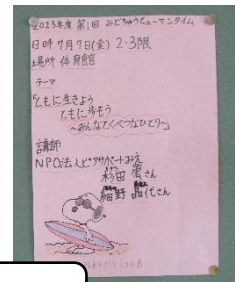 2023年度 第1回 みどちゅうヒューマンタイム
日時 7月7日(金) 2・3限
場所 体育館
テーマ
「ともに生きよう
ともに歩もう
～みんなとくべつなひとり～」
講師
NPO法人ピアサポートみえ
杉田 宏さん
細野 晶代さん